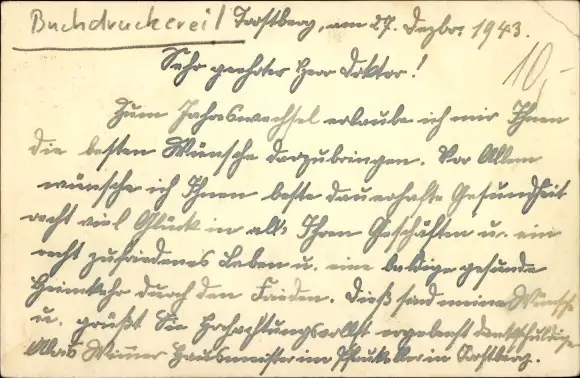 Buchdruckerei!
Trostberg, am 27. Dezbr. 1943.
Sehr geehrter Herr Doktor!
10,-
Zum Jahreswechsel erlaube ich mir Ihnen
die besten Wünsche darzubringen. Vor Allem
wünsche ich Ihnen beste dauerhafte Gesundheit
recht viel Glück in all' Ihren Geschäften u. ein
recht zufriedenes Leben u. eine baldige gesunde
Heimkehr durch den Frieden. Dieß sind meine Wünsche
u. grüßt Sie Hochachtungsvollst ergebenst
Wimmer Hausmeister im in Trostberg.